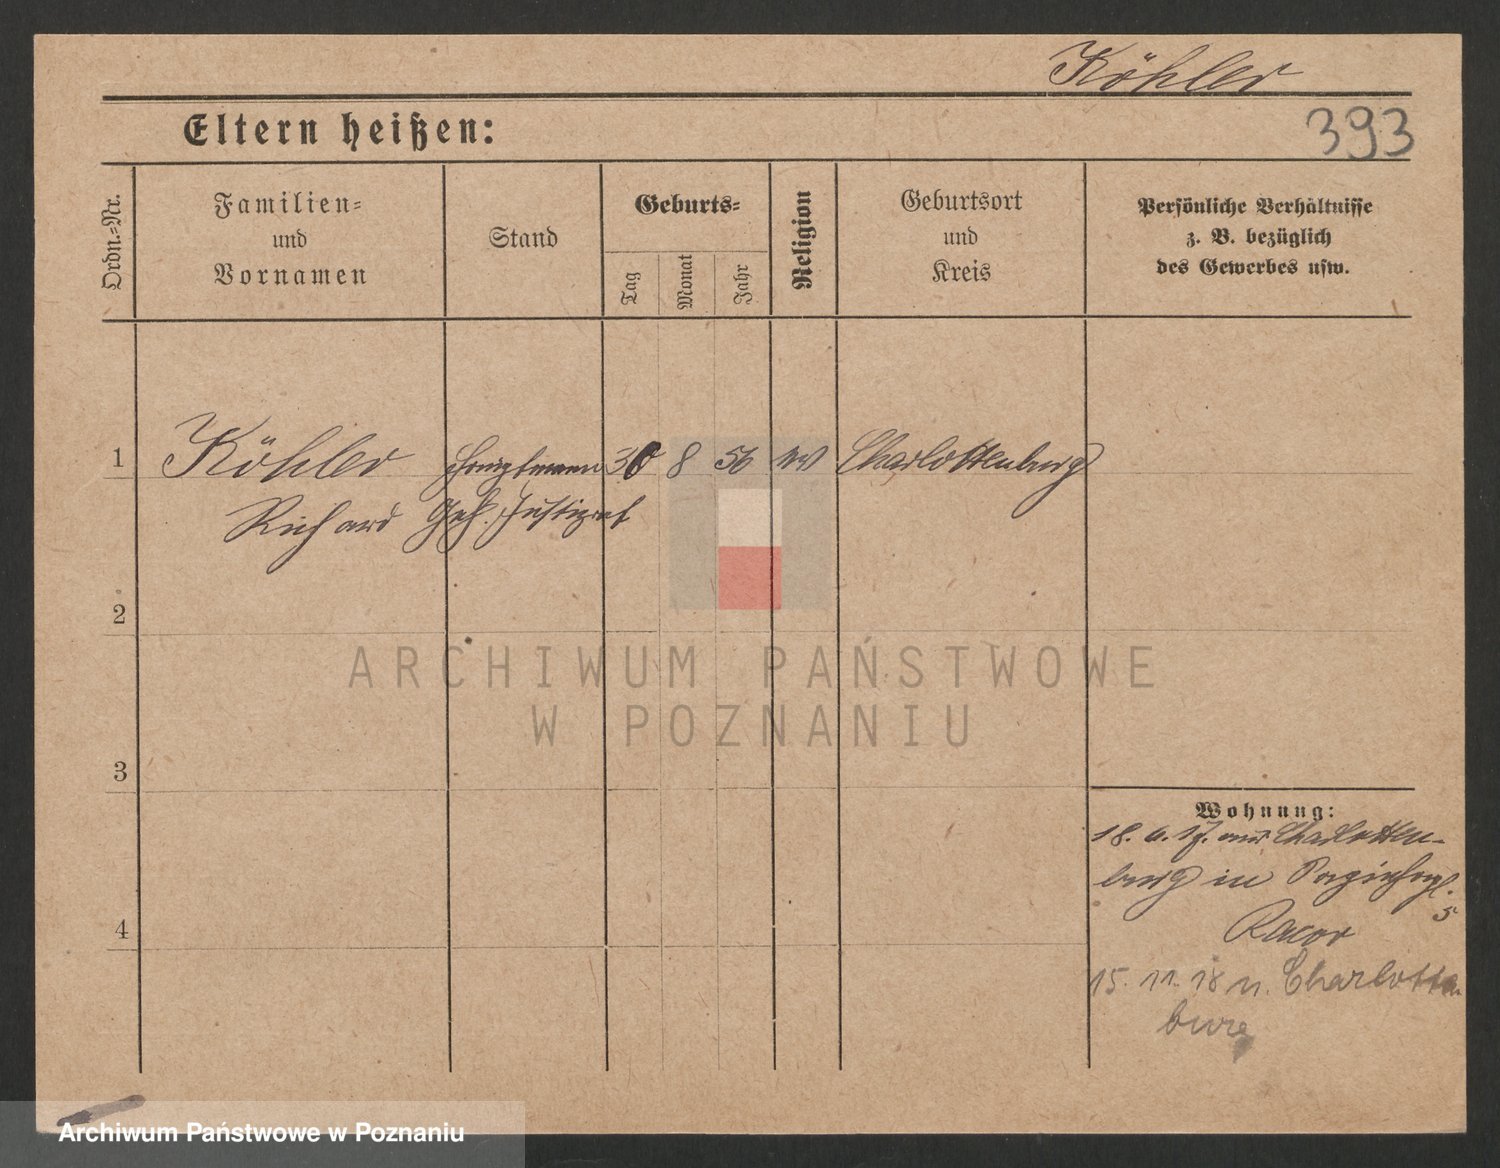 Köhler
393
Eltern heißen:
Ordn.-Nr.
Familien-
und
Vornamen
Stand
Geburts-
Tag
Monat
Jahr
Religion
Geburtsort
und
Kreis
Persönliche Verhältnisse
z. B. bezüglich
des Gewerbes usw.
1 Köhler Hauptmann 30 8 56 ev Charlottenburg
Richard Geh. Justizrat
2
3
4
Wohnung:
18. 6. 17. aus Charlotten-
burg in
5
15. 11. 18 n. Charlotten
burg
ARCHIWUM PAŃSTWOWE
W POZNANIU
Archiwum Państwowe w Poznaniu